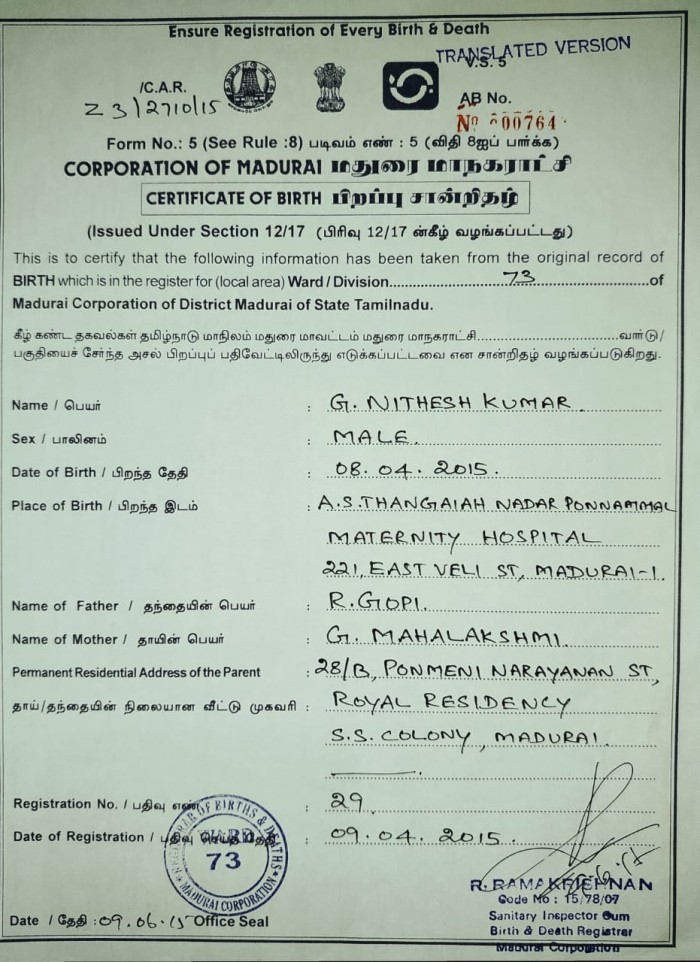 Ensure Registration of Every Birth & Death
TRANSLATED VERSION
V.S. 5
/C.A.R.
Z3/2710/15
AB No.
No 00764
Form No.: 5 (See Rule :8) படிவம் எண் : 5 (விதி 8ஐப் பார்க்க)
CORPORATION OF MADURAI மதுரை மாநகராட்சி
CERTIFICATE OF BIRTH பிறப்பு சான்றிதழ்
(Issued Under Section 12/17 (பிரிவு 12/17 ன்கீழ் வழங்கப்பட்டது)
This is to certify that the following information has been taken from the original record of
BIRTH which is in the register for (local area) Ward / Division.......73.......of
Madurai Corporation of District Madurai of State Tamilnadu.
கீழ் கண்ட தகவல்கள் தமிழ்நாடு மாநிலம் மதுரை மாவட்டம் மதுரை மாநகராட்சி..............வார்டு/
பகுதியைச் சேர்ந்த அசல் பிறப்புப் பதிவேட்டிலிருந்து எடுக்கப்பட்டவை என சான்றிதழ் வழங்கப்படுகிறது.
Name / பெயர் : G. NITHESH KUMAR.
Sex / பாலினம் : MALE.
Date of Birth / பிறந்த தேதி : 08.04.2015.
Place of Birth / பிறந்த இடம் : A.S.THANGAIAH NADAR PONNAMMAL
MATERNITY HOSPITAL
221, EAST VELI ST, MADURAI-1.
Name of Father / தந்தையின் பெயர் : R.GOPI.
Name of Mother / தாயின் பெயர் : G. MAHALAKSHMI.
Permanent Residential Address of the Parent : 28/B, PONMENI NARAYANAN ST,
தாய்/தந்தையின் நிலையான வீட்டு முகவரி : ROYAL RESIDENCY
S.S. COLONY, MADURAI.
Registration No. / பதிவு எண் : 29.
Date of Registration / பதிவு செய்த தேதி : 09.04.2015.
REGISTRAR OF BIRTHS & DEATHS
WARD
73
MADURAI CORPORATION
R. RAMAKRISHNAN
Code No : 15/78/07
Sanitary Inspector Cum
Birth & Death Registrar
Madurai Corporation
Date / தேதி : 09.06.15 Office Seal